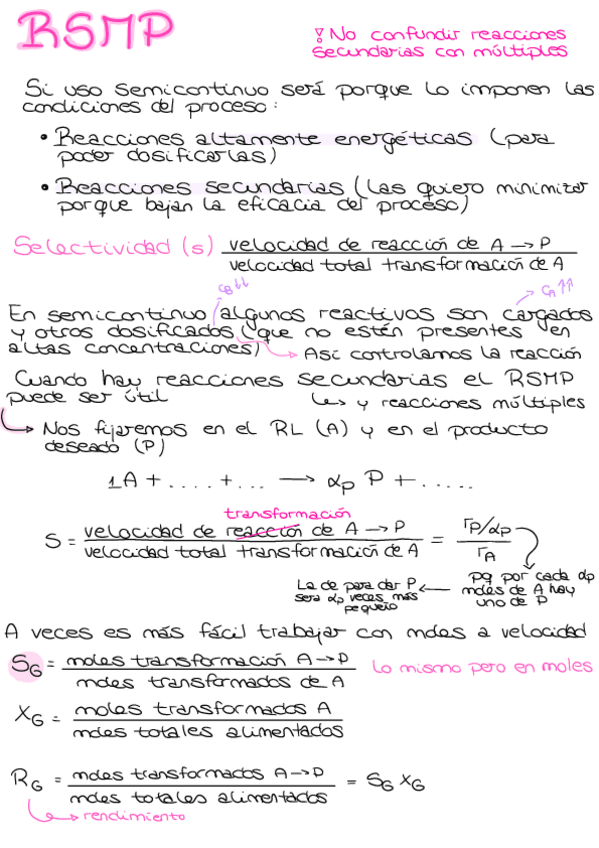 RSMP
! No confundir reacciones
secundarias con múltiples
Si uso semicontinuo será porque lo imponen las
condiciones del proceso:
• Reacciones altamente energéticas (para
poder dosificarlas)
• Reacciones secundarias (las quiero minimizar
porque bajan la eficacia del proceso)
Selectividad (s) velocidad de reacción de A → P
velocidad total transformación de A
CB↓↓
CA↑↑
En semicontinuo algunos reactivos son cargados
y otros dosificados (que no estén presentes en
altas concentraciones) → Así controlamos la reacción
Cuando hay reacciones secundarias el RSMP
puede ser útil
↳ y reacciones múltiples
↳ Nos fijaremos en el RL (A) y en el producto
deseado (P)
1A + .... + ... → αp P + .....
transformación
S = velocidad de reacción de A → P / velocidad total transformación de A = rP/αp / rA
La de para dar P ←
será αp veces más
pequeño
pq por cada αp
moles de A hay
uno de P
A veces es más fácil trabajar con moles a velocidad
SG = moles transformación A→P / moles transformados de A
Lo mismo pero en moles
XG = moles transformados A / moles totales alimentados
RG = moles transformados A→P / moles totales alimentados = SG XG
↳ rendimiento